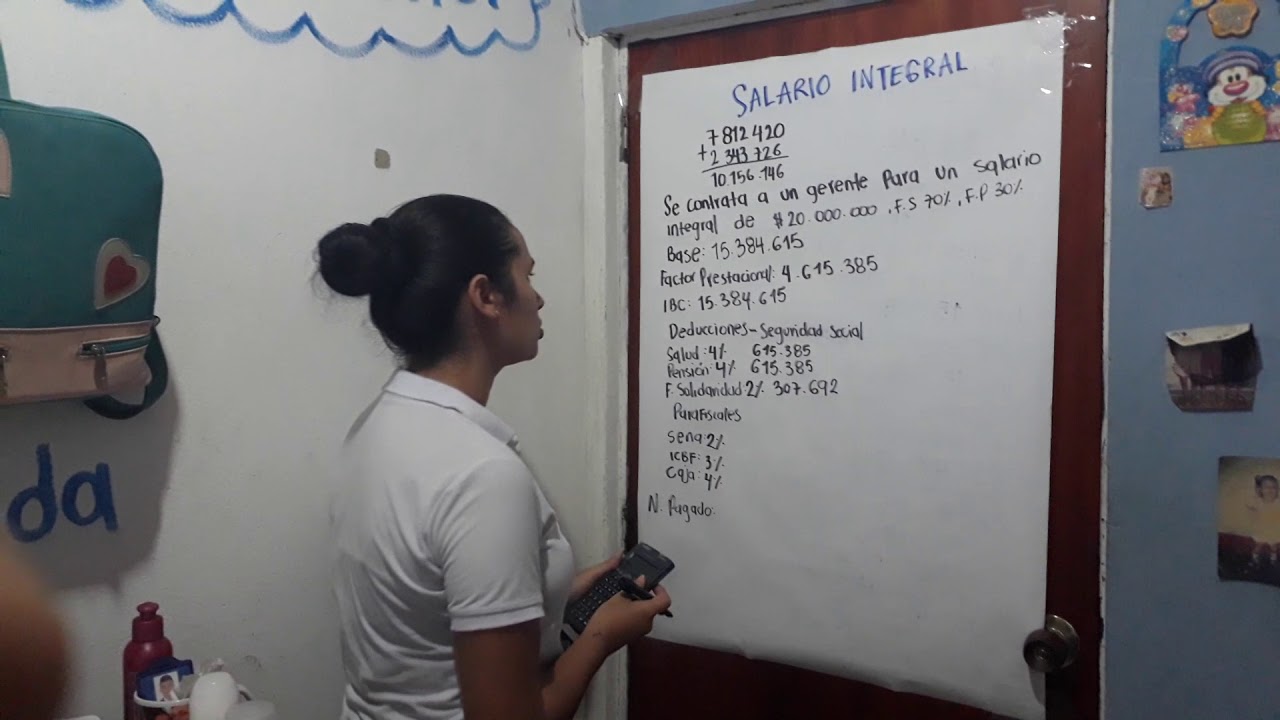 da
SALARIO INTEGRAL
7 812 420
+ 2 343 726
10.156.146
Se contrata a un gerente Para un salario
integral de $ 20.000.000 , F.S 70% , F.P 30%
Base: 15.384.615
Factor Prestacional: 4.615.385
IBC: 15.384.615
Deducciones - Seguridad Social
Salud: 4% 615.385
Pensión: 4% 615.385
F. Solidaridad 2% 307.692
Parafiscales
Sena: 2%
ICBF: 3%
Caja: 4%
N. Pagado: